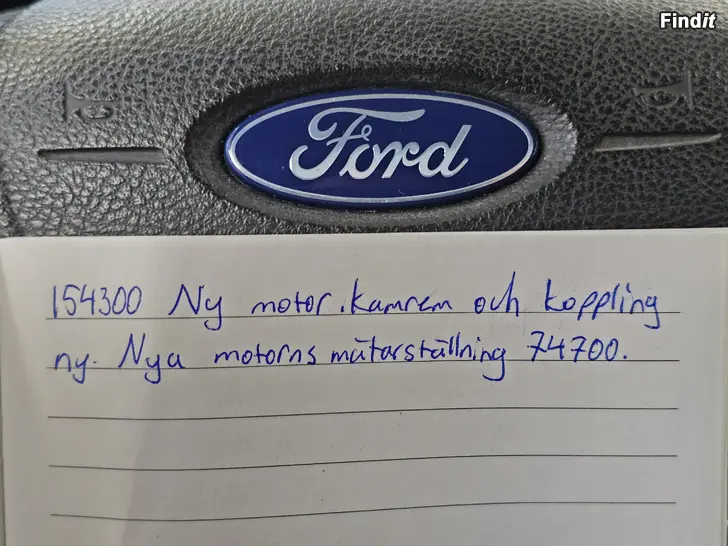 Findit
Ford
154300 Ny motor. kamrem och koppling
ny. Nya motorns mätarställning 74700.